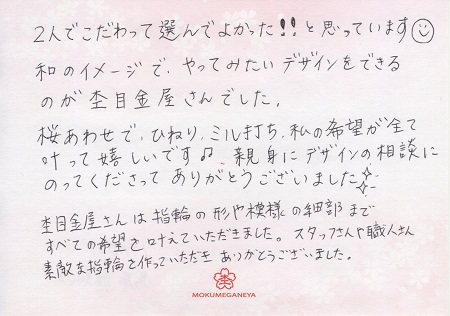 2人でこだわって選んでよかった!!と思っています☺
和のイメージで、やってみたいデザインをできる
のが杢目金屋さんでした。
桜あわせで、ひねり、ミル打ち、私の希望が全て
叶って嬉しいです♫ 親身にデザインの相談に
のってくださって ありがとうございました✨
杢目金屋さんは指輪の形や模様の細部まで
すべての希望を叶えていただきました。スタッフさんや職人さん
素敵な指輪を作っていただき ありがとうございました。
MOKUMEGANEYA